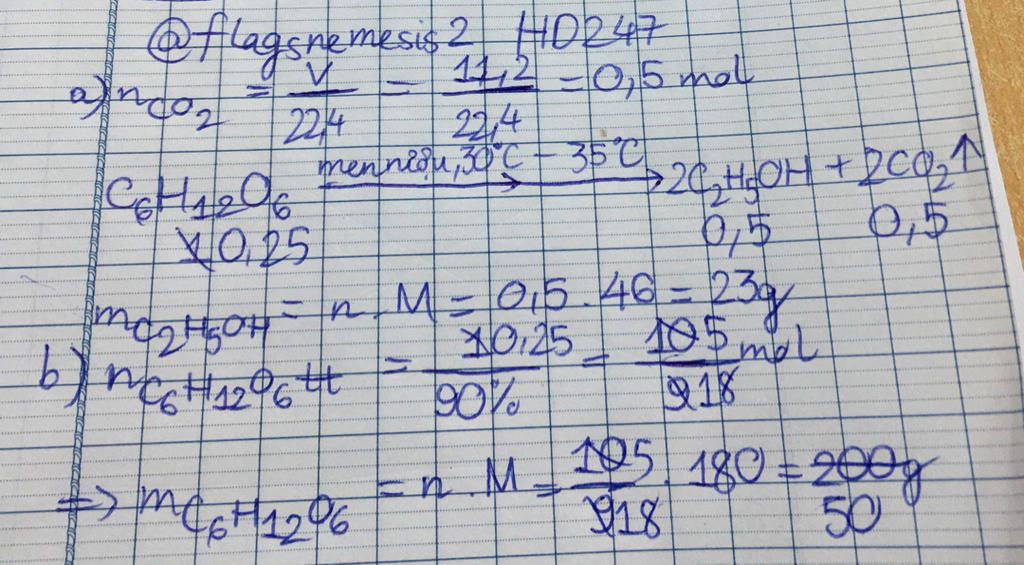 @flagsnemesis2 HD247
a) nCO2 = V/22,4 = 11,2/22,4 = 0,5 mol
C6H12O6 men rượu, 30°C - 35°C → 2C2H5OH + 2CO2↑
0,25 0,5 0,5
mC2H5OH = n.M = 0,5.46 = 23g
b) nC6H12O6 tt = 0,25/90% = 5/18 mol
=> mC6H12O6 = n.M = 5/18 . 180 = 200g
50